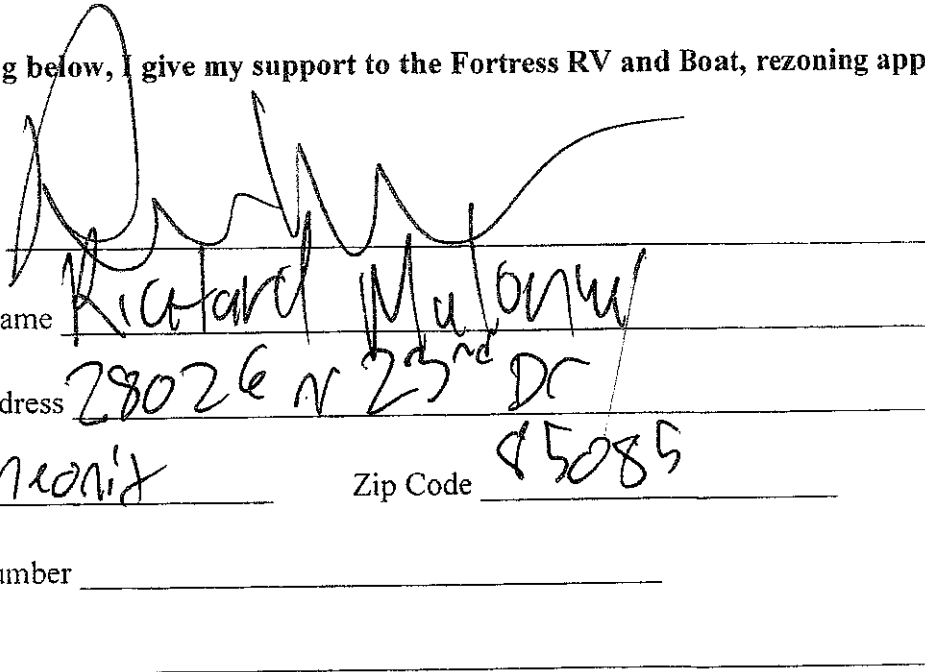 g below, I give my support to the Fortress RV and Boat, rezoning app
ame Richard
dress 28026 N 23rd Dr
heonix Zip Code 85085
umber